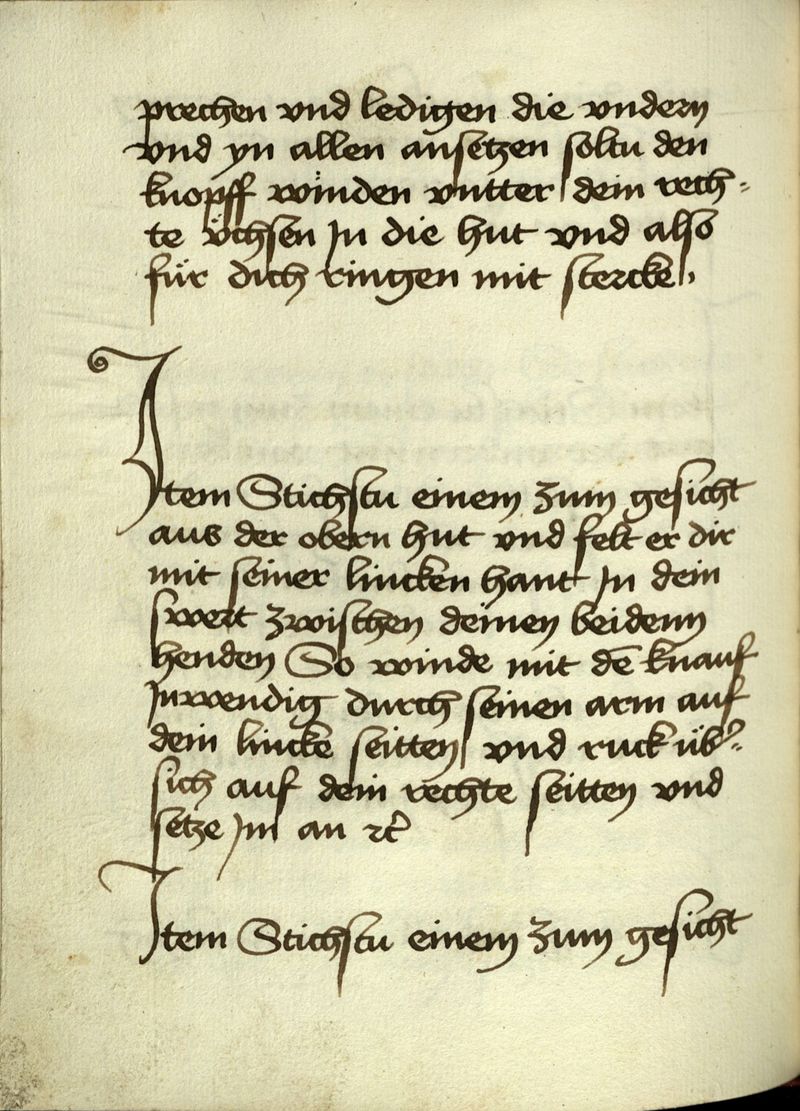 prechen vnd ledigen die vndern
vnd yn allen ansetzen soltu den
knopff winden vntter dein rech-
te vͤchsen Jn die hut vnd also
für dich ringen mit stercke,
Jtem Stichstu einem zum gesicht
aus der obern hut vnd felt er dir
mit seiner lincken hant Jn dein
swert zwischen deinen beidenn
henden So winde mit dē knauf
Jnwendig durch seinen arm auf
dein lincke seitten vnd ruck üb᷒-
sich auf dein rechte seitten vnd
setze Jm an ꝛc̄
Jtem Stichstu einem zum gesicht